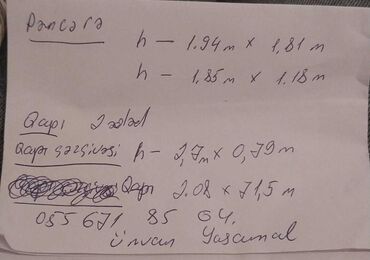 Pəncərə
h - 1.94 m x 1,81 m
h - 1.85 m x 1.18 m
Qapı 2 ədəd
Qapı çərçivəsi h - 2,7 m x 0,79 m
Qapı 2.08 x 71,5 m
055 671 85 64.
Ünvan Yasamal